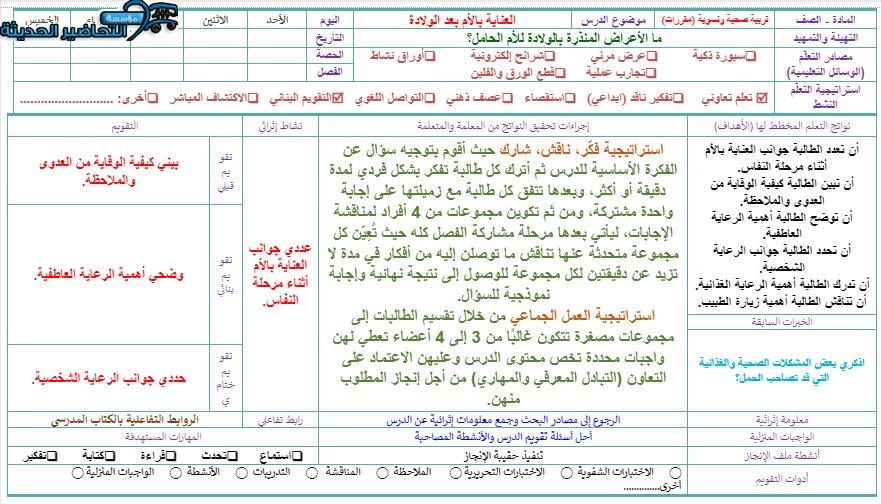 مؤسسة التحاضير الحديثة
المادة - الصف
تربية صحية ونسوية (مقررات)
موضوع الدرس
العناية بالأم بعد الولادة
اليوم
الأحد
الاثنين
الخميس
التهيئة والتمهيد
ما الأعراض المنذرة بالولادة للأم الحامل؟
التاريخ
مصادر التعلم
(الوسائل التعليمية)
❑سبورة ذكية ❑عرض مرئي ❑شرائح إلكترونية ❑أوراق نشاط
❑تجارب عملية ❑قطع الورق والفلين
الحصة
الفصل
استراتيجية التعلم
النشط
☑ تعلم تعاوني ❑تفكير ناقد (ابداعي) ❑استقصاء ❑عصف ذهني ❑التواصل اللغوي ☑التقويم البنائي ❑الاكتشاف المباشر ❑أخرى: ..........................
نواتج التعلم المخطط لها (الأهداف)
إجراءات تحقيق النواتج من المعلمة والمتعلمة
نشاط إثرائي
التقويم
أن تعدد الطالبة جوانب العناية بالأم
أثناء مرحلة النفاس.
أن تبين الطالبة كيفية الوقاية من
العدوى والملاحظة.
أن توضح الطالبة أهمية الرعاية
العاطفية.
أن تحدد الطالبة جوانب الرعاية
الشخصية.
أن تدرك الطالبة أهمية الرعاية الغذائية.
أن تناقش الطالبة أهمية زيارة الطبيب.
الخبرات السابقة
اذكري بعض المشكلات الصحية والغذائية
التي قد تصاحب الحمل؟
استراتيجية فكّر، ناقش، شارك حيث أقوم بتوجيه سؤال عن
الفكرة الأساسية للدرس ثم أترك كل طالبة تفكر بشكل فردي لمدة
دقيقة أو أكثر، وبعدها تتفق كل طالبة مع زميلتها على إجابة
واحدة مشتركة، ومن ثم تكوين مجموعات من 4 أفراد لمناقشة
الإجابات، ليأتي بعدها مرحلة مشاركة الفصل كله حيث تُعِيّن كل
مجموعة متحدثة عنها تناقش ما توصلن إليه من أفكار في مدة لا
تزيد عن دقيقتين لكل مجموعة للوصول إلى نتيجة نهائية وإجابة
نموذجية للسؤال.
استراتيجية العمل الجماعي من خلال تقسيم الطالبات إلى
مجموعات مصغرة تتكون غالبًا من 3 إلى 4 أعضاء تعطي لهن
واجبات محددة تخص محتوى الدرس وعليهن الاعتماد على
التعاون (التبادل المعرفي والمهاري) من أجل إنجاز المطلوب
منهن.
عددي جوانب
العناية بالأم
أثناء مرحلة
النفاس.
تقو
يم
قبلي
بيني كيفية الوقاية من العدوى
والملاحظة.
تقو
يم
بنائي
وضحي أهمية الرعاية العاطفية.
تقو
يم
ختام
ي
حددي جوانب الرعاية الشخصية.
معلومة إثرائية
الرجوع إلى مصادر البحث وجمع معلومات إثرائية عن الدرس
رابط تفاعلي
الروابط التفاعلية بالكتاب المدرسي
الواجبات المنزلية
أحل أسئلة تقويم الدرس والأنشطة المصاحبة
المهارات المستهدفة
أنشطة ملف الإنجاز
تنفيذ حقيبة الإنجاز
❑استماع ❑تحدث ❑قراءة ❑كتابة ❑تفكير
أدوات التقويم
○ الاختبارات الشفوية ○ الاختبارات التحريرية ○ الملاحظة ○ المناقشة ○ التدريبات ○ الأنشطة ○ الواجبات المنزلية ○
أخرى.............